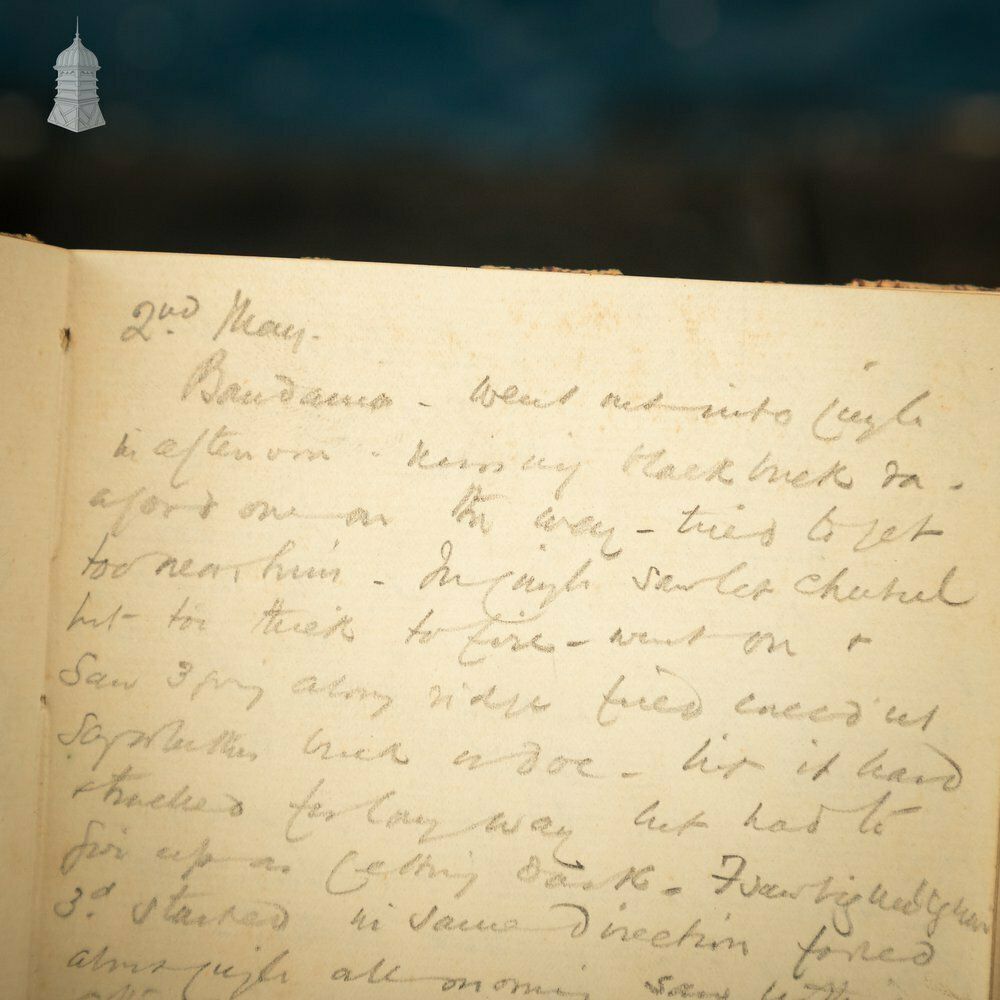 2nd May.
Bandama - Went out into jungle
in afternoon - missing black buck
one on the way - tried to get
too near him - In jungle saw lot cheetul
but too thick to fire - went on &
saw 3 going along ridge fired could not
say whether buck or doe - hit it hard
& tracked for long way but had to
give up as getting dark -
3d started in same direction
jungle all morning saw